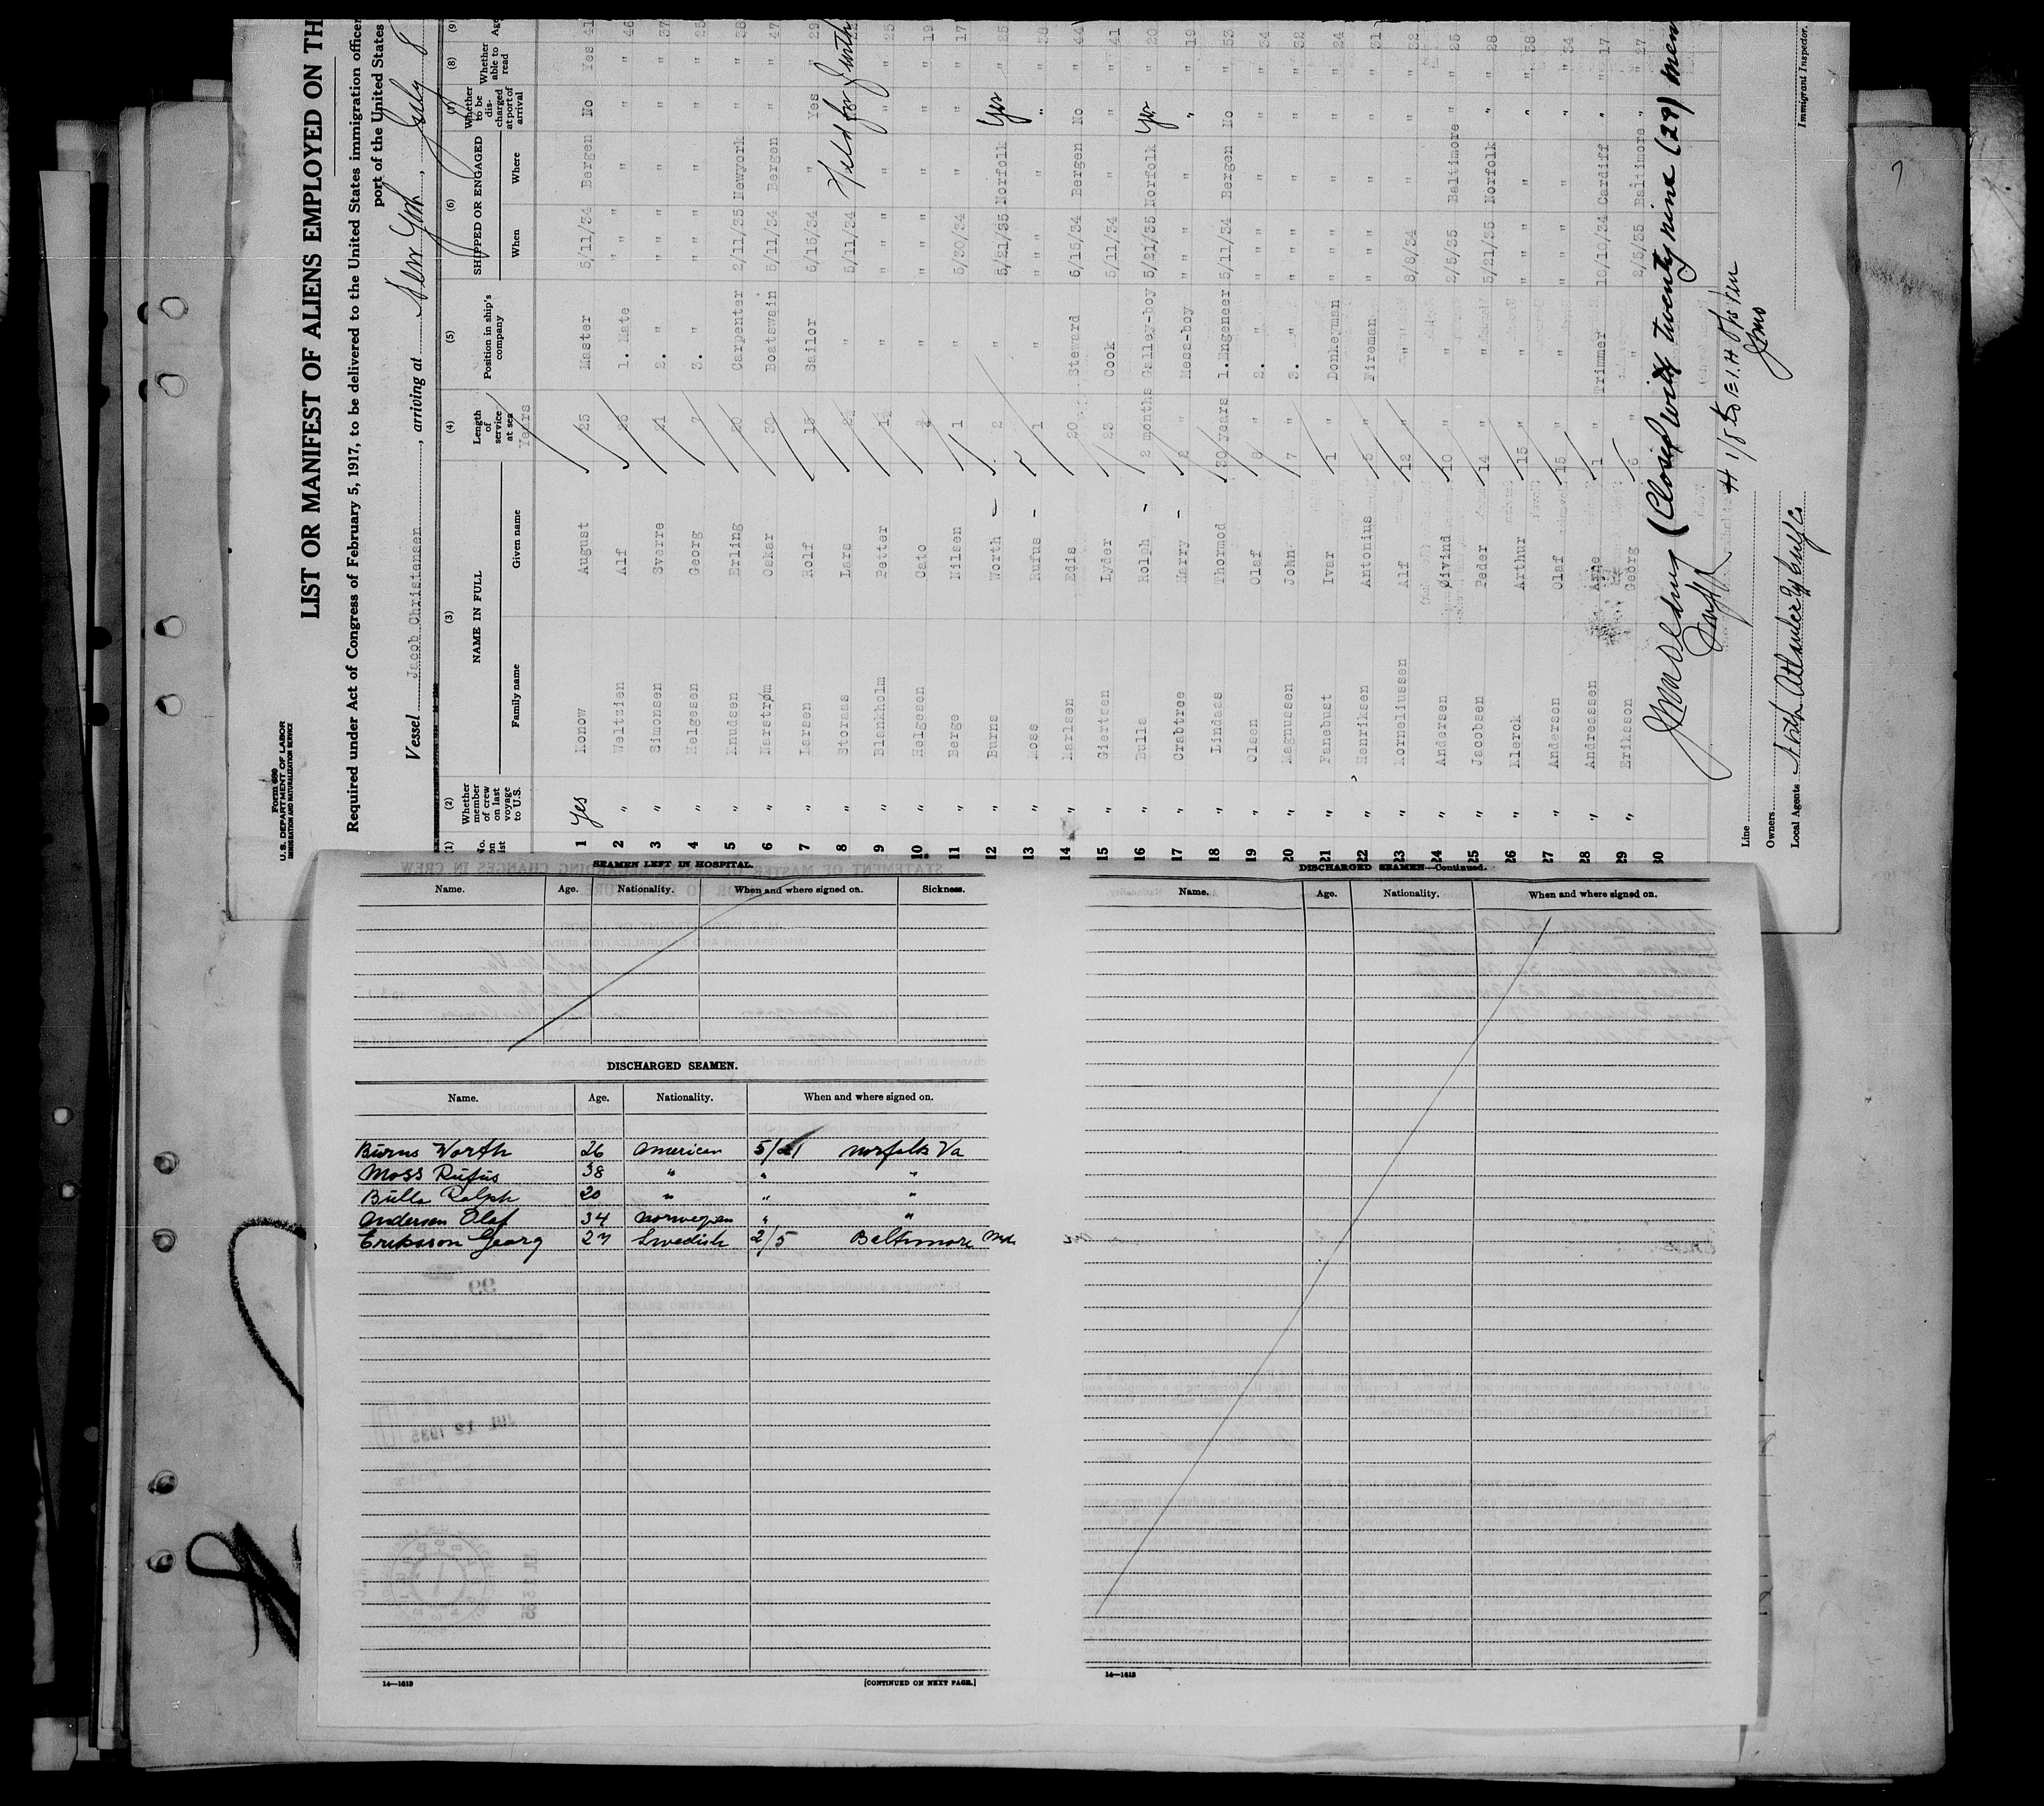 Form 680
U.S. DEPARTMENT OF LABOR
IMMIGRATION AND NATURALIZATION SERVICE
LIST OR MANIFEST OF ALIENS EMPLOYED ON TH
Required under Act of Congress of February 5, 1917, to be delivered to the United States immigration officer
port of the United States
Vessel Jacob Christensen, arriving at New York, July 8
(1) (2) (3) (4) (5) (6) (7) (8) (9)
No. on list Whether member of crew on last voyage to U.S. NAME IN FULL Family name Given name Length of service at sea Position in ship's company SHIPPED OR ENGAGED When Where Whether to be discharged at port of arrival Whether able to read Age
Years
1 Yes Konow August 25 Master 5/11/34 Bergen No Yes 41
2 " Weltzien Alf 1. Mate " " " " 46
3 " Simonsen Sverre 21 2. " " " " " 37
4 " Helgesen Georg 7 3. " " " " " 25
5 " Knudsen Erling 20 Carpenter 2/11/35 Newyork " " 38
6 " Karstrøm Oskar 30 Boatswain 5/11/34 Bergen " " 47
7 " Larsen Rolf 15 Sailor 6/15/34 " Yes " 29
8 " Storaas Lars " 5/11/34 Held for furth
9 " Blankholm Petter 1½ " " " " " 25
10 " Helgesen Cato " " " " " 19
11 " Berge Nilsen 1 " 5/30/34 " " " 17
12 " Burns Worth – 2 " 5/21/35 Norfolk Yes " 25
13 " Moss Rufus – 1 " " " " " " 38
14 " Karlsen Edis 20 Steward 6/15/34 Bergen No " 44
15 " Giertsen Lyder 23 Cook 5/11/34 " " " 41
16 " Bulla Rolph – 2 months Galley-boy 5/21/35 Norfolk Yes " 20
17 " Crabtree Harry – 2 " Mess-boy " " " " " 19
18 " Lindaas Thormod 30 years 1. Engeneer 5/11/34 Bergen No " 53
19 " Olsen Olaf 8 " 2. " " " " " " " 34
20 " Magnussen John 7 " 3. " " " " " " " 32
21 " Fanebust Ivar 1 " Donkeyman " " " " " " 24
22 " Henriksen Antonius 5 " Fireman " " " " " " 31
23 " Korneliussen Alf 12 " " 8/8/34 " " " 32
24 " Andersen Øivind 10 " " 2/5/35 Baltimore " " 25
25 " Jacobsen Peder 14 " " 5/21/35 Norfolk " " 28
26 " Klerck Arthur 15 " " " " " " " " 38
27 " Andersen Olaf 15 " " " " " " " " 34
28 " Andreassen Arne 1 " Trimmer 10/10/34 Cardiff " " 17
29 " Eriksson Georg 6 " " 2/5/35 Baltimore " " 27
30 (Closed with twenty nine (29) mem
Line
Owners
Local Agents North Atlantic & Gulf Co
Immigrant Inspector.
SEAMEN LEFT IN HOSPITAL.
Name. Age. Nationality. When and where signed on. Sickness.
DISCHARGED SEAMEN.
Name. Age. Nationality. When and where signed on.
Burns Worth 26 American 5/21 Norfolk Va
Moss Rufus 38 " " "
Bulla Ralph 20 " " "
Andersen Olaf 34 Norwegian " "
Eriksson Georg 27 Swedish 2/5 Baltimore Md.
14—1613 [CONTINUED ON NEXT PAGE.]
DISCHARGED SEAMEN—Continued.
Name. Age. Nationality. When and where signed on.
14—1613